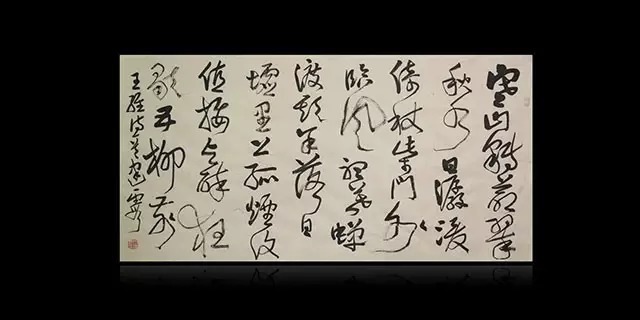 寒山轉蒼翠
秋水日潺湲
倚杖柴門外
臨風聽暮蟬
渡頭餘落日
墟里上孤煙復
值接輿醉狂
歌五柳前
王維詩